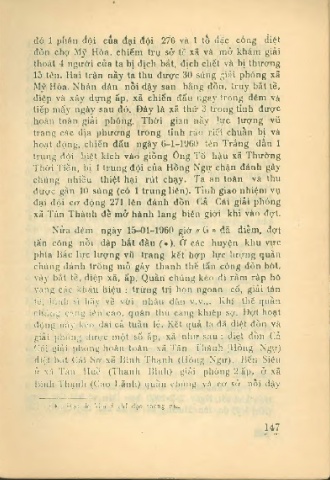 đó 1 phân đội của đại đội 276 và 1 tổ đặc công diệt
đồn chợ Mỹ Hòa, chiếm trụ sở tề xã và mở khám giải
thoát 4 người của ta bị địch bắt, địch chết và bị thương
15 tên. Hai trận này ta thu được 30 súng giải phóng xã
Mỹ Hòa. Nhân dân nổi dậy san bằng đồn, truy bắt tề,
điệp và xây dựng ấp, xã chiến đấu ngay trong đêm và
tiếp mấy ngày sau đó. Đây là xã thứ 3 trong tỉnh được
hoàn toàn giải phóng. Thời gian này lực lượng vũ
trang các địa phương trong tỉnh ráo riết chuẩn bị và
hoạt động, chiến đấu ngày 6-1-1960 tên Trảng dẫn 1
trung đội biệt kích vào giồng Ông Tố hậu xã Thường
Thới Tiền, bị 1 trung đội của Hồng Ngự chặn đánh gây
chúng nhiều thiệt hại rút chạy. Ta an toàn và thu
được gần 10 súng (có 1 trung liên). Tỉnh giao nhiệm vụ
đại đội cơ động 271 lên đánh đồn Cả Cái giải phóng
xã Tân Thành để mở hành lang biên giới khi vào đợt.
Nửa đêm ngày 15-01-1960 giờ « G » đã điểm, đợt
tấn công nổi dậy bắt đầu (*). Ở các huyện khu vực
phía Bắc lực lượng vũ trang kết hợp lực lượng quần
chúng đánh trống mõ gây thanh thế tấn công đồn bót,
vây bắt tề, điệp xã, ấp. Quần chúng kéo đi rầm rập hô
vang các khẩu hiệu : trừng trị bọn ngoan cố, giải tán
tề, binh sĩ hãy về với nhân dân v.v... Khí thế quần
chúng càng lên cao, quân thù càng khiếp sợ. Đợt hoạt
động này kéo dài cả tuần lễ. Kết quả ta đã diệt đồn và
giải phóng được một số ấp, xã như sau : diệt đồn Cả
Cái giải phóng hoàn toàn xã Tân Thành (Hồng Ngự)
diệt bót Cái Sơ xã Bình Thạnh (Hồng Ngự). Bến Siêu
ở xã Tân Huề (Thanh Bình) giải phóng 2 ấp, ở xã
Bình Thạnh (Cao Lãnh) quần chúng và cơ sở nổi dậy
147